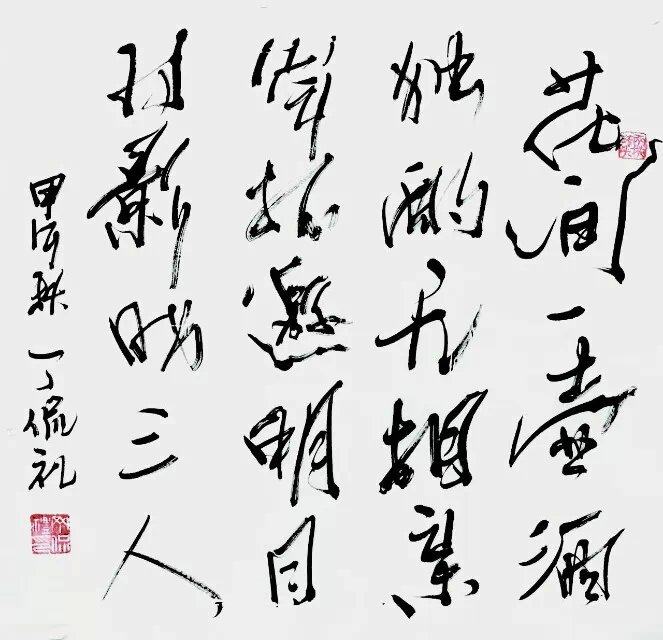 花间一壶酒
独酌无相亲
举杯邀明月
对影成三人
甲辰秋 丁侃礼